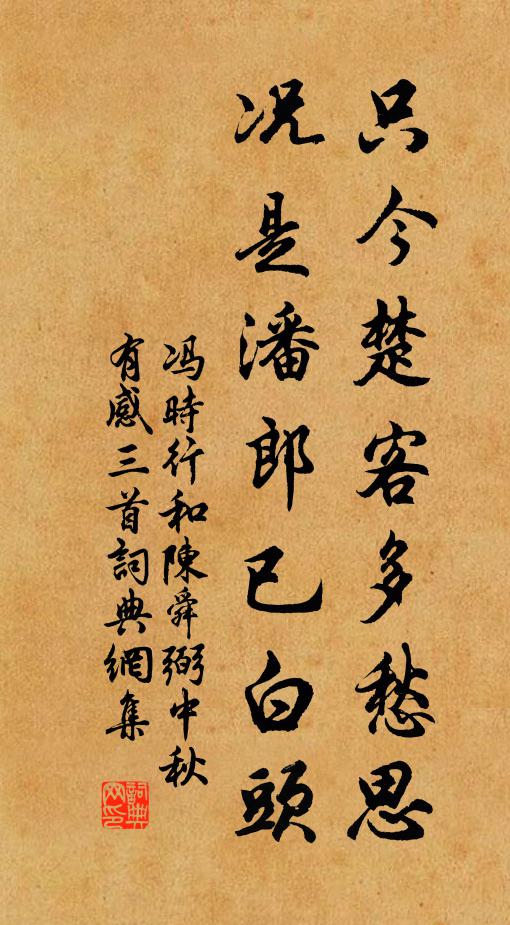 只今楚客多愁思
况是潘郎已白頭
冯時行和陳舜弼中秋
有感三首詞典網集
詞典
网印